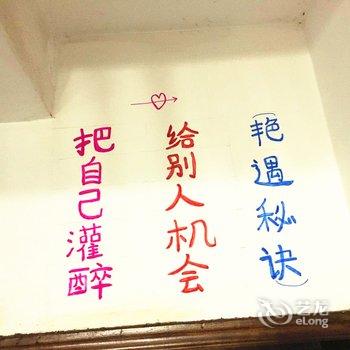 (艳遇秘诀)
给别人机会
把自己灌醉
艺龙
eLong